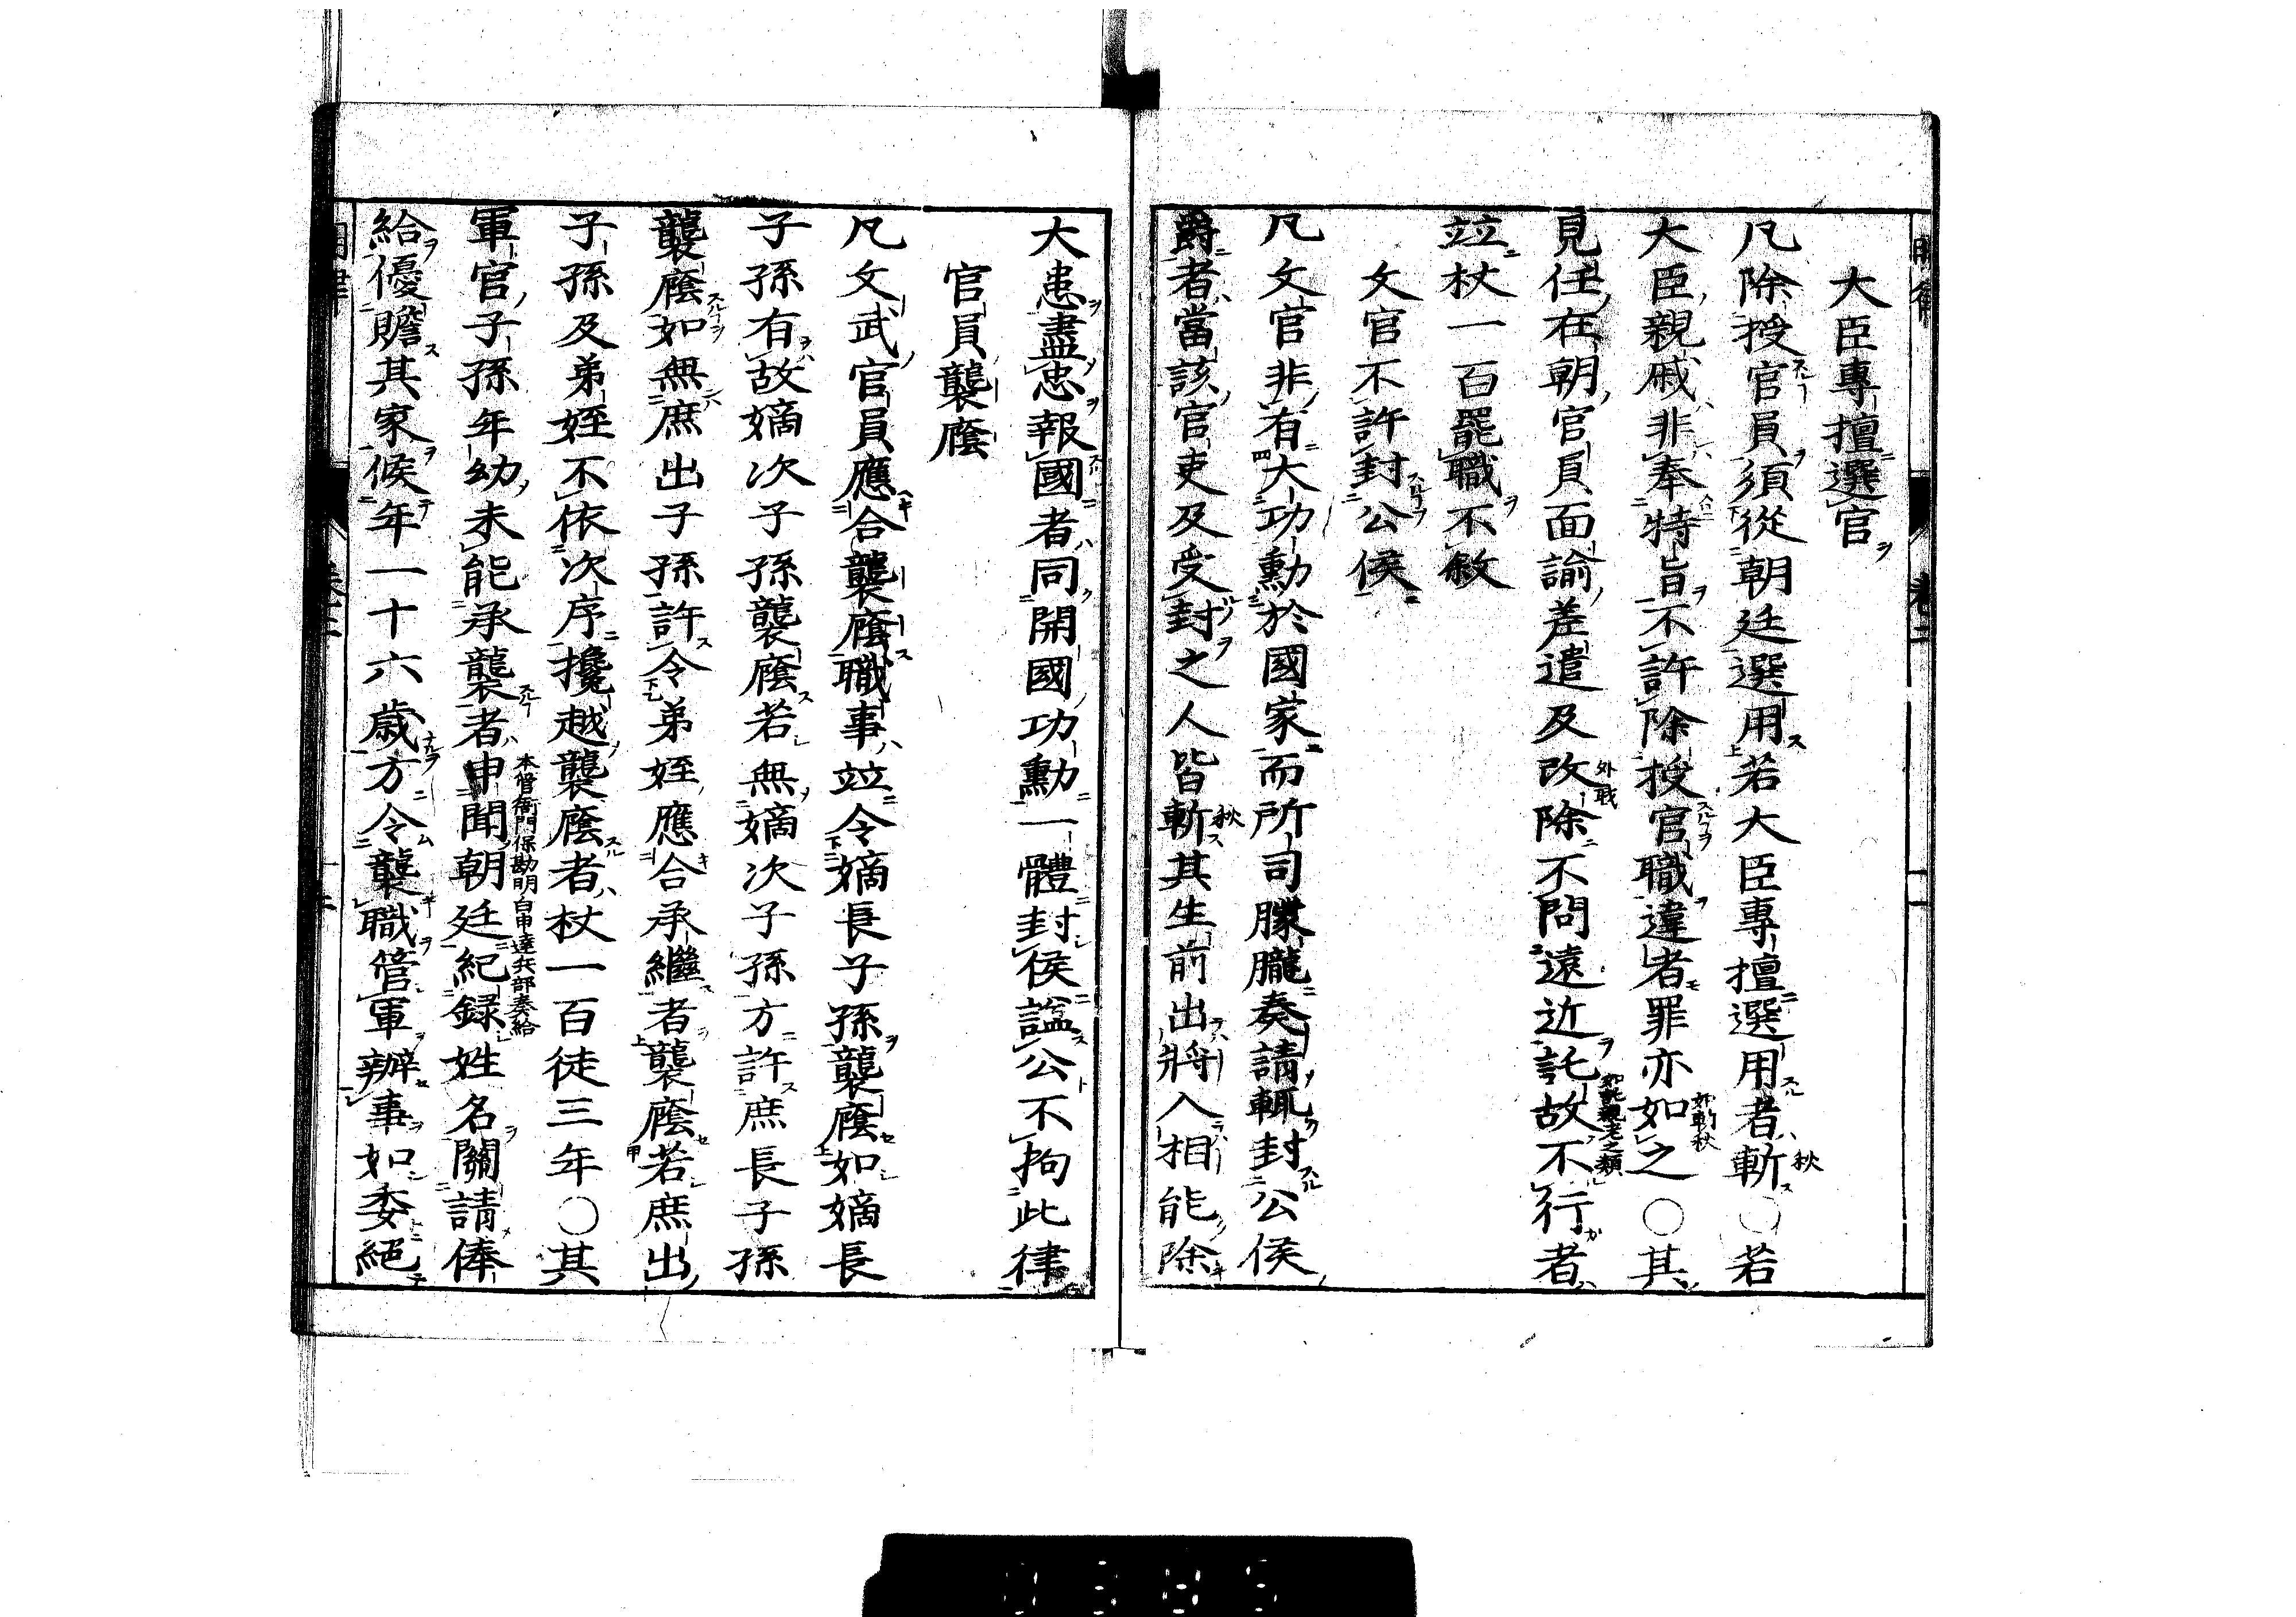 大臣專擅選官
凢除授官員須從朝廷選用若大臣專擅選用者斬〇若
大臣親戚非奉特旨不許除授官職違者罪亦如之〇其
見任在朝官員面諭差遣及改除不問遠近託故不行者
竝杖一百罷職不敘
文官不許封公侯
凢文官非有大功勳於國家而所司朦朧奏請輒封公侯
爵者當該官吏及受封之人皆斬其生前出將入相能除
大患盡忠報國者同開國功勳一體封侯謚公不拘此律
官員襲廕
凢文武官員應合襲廕職事竝令嫡長子孫襲廕如嫡長
子孫有故嫡次子孫襲廕若無嫡次子孫方許庶長子孫
襲廕如無庶出子孫許令弟姪應合承繼者襲廕若庶出
子孫及弟姪不依次序攙越襲廕者杖一百徒三年〇其
軍官子孫年幼未能承襲者申聞朝廷紀録姓名關請俸
本管衙門保勘明白申達兵部奏給
給優贍其家候年一十六歳方令襲職管軍辦事如委絕